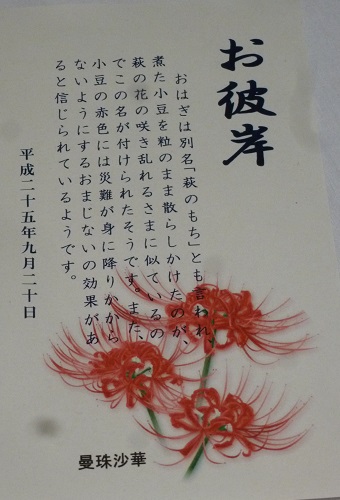 お彼岸
おはぎは別名「萩のもち」とも言われ、
煮た小豆を粒のまま散らしかけたのが、
萩の花の咲き乱れるさまに似ているの
でこの名が付けられたそうです。また、
小豆の赤色には災難が身に降りかから
ないようにするおまじないの効果があ
ると信じられているようです。
平成二十五年九月二十日
曼珠沙華